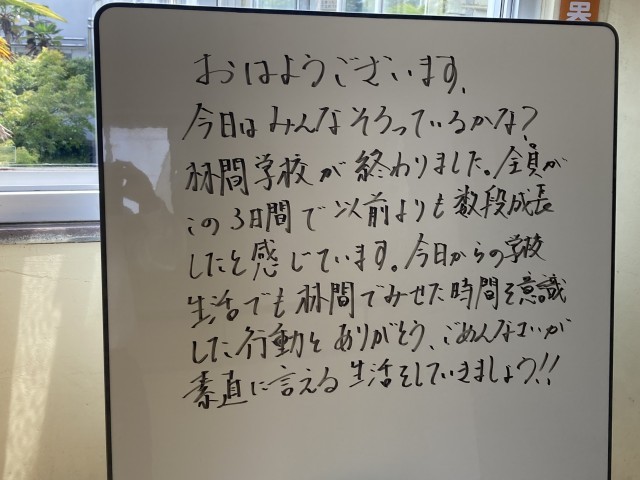 おはようございます。
今日はみんなそろっているかな?
林間学校が終わりました。全員が
この3日間で以前よりも数段成長
したと感じています。今日からの学校
生活でも林間でみせた時間を意識
した行動とありがとう、ごめんなさいが
素直に言える生活をしていきましょう!!